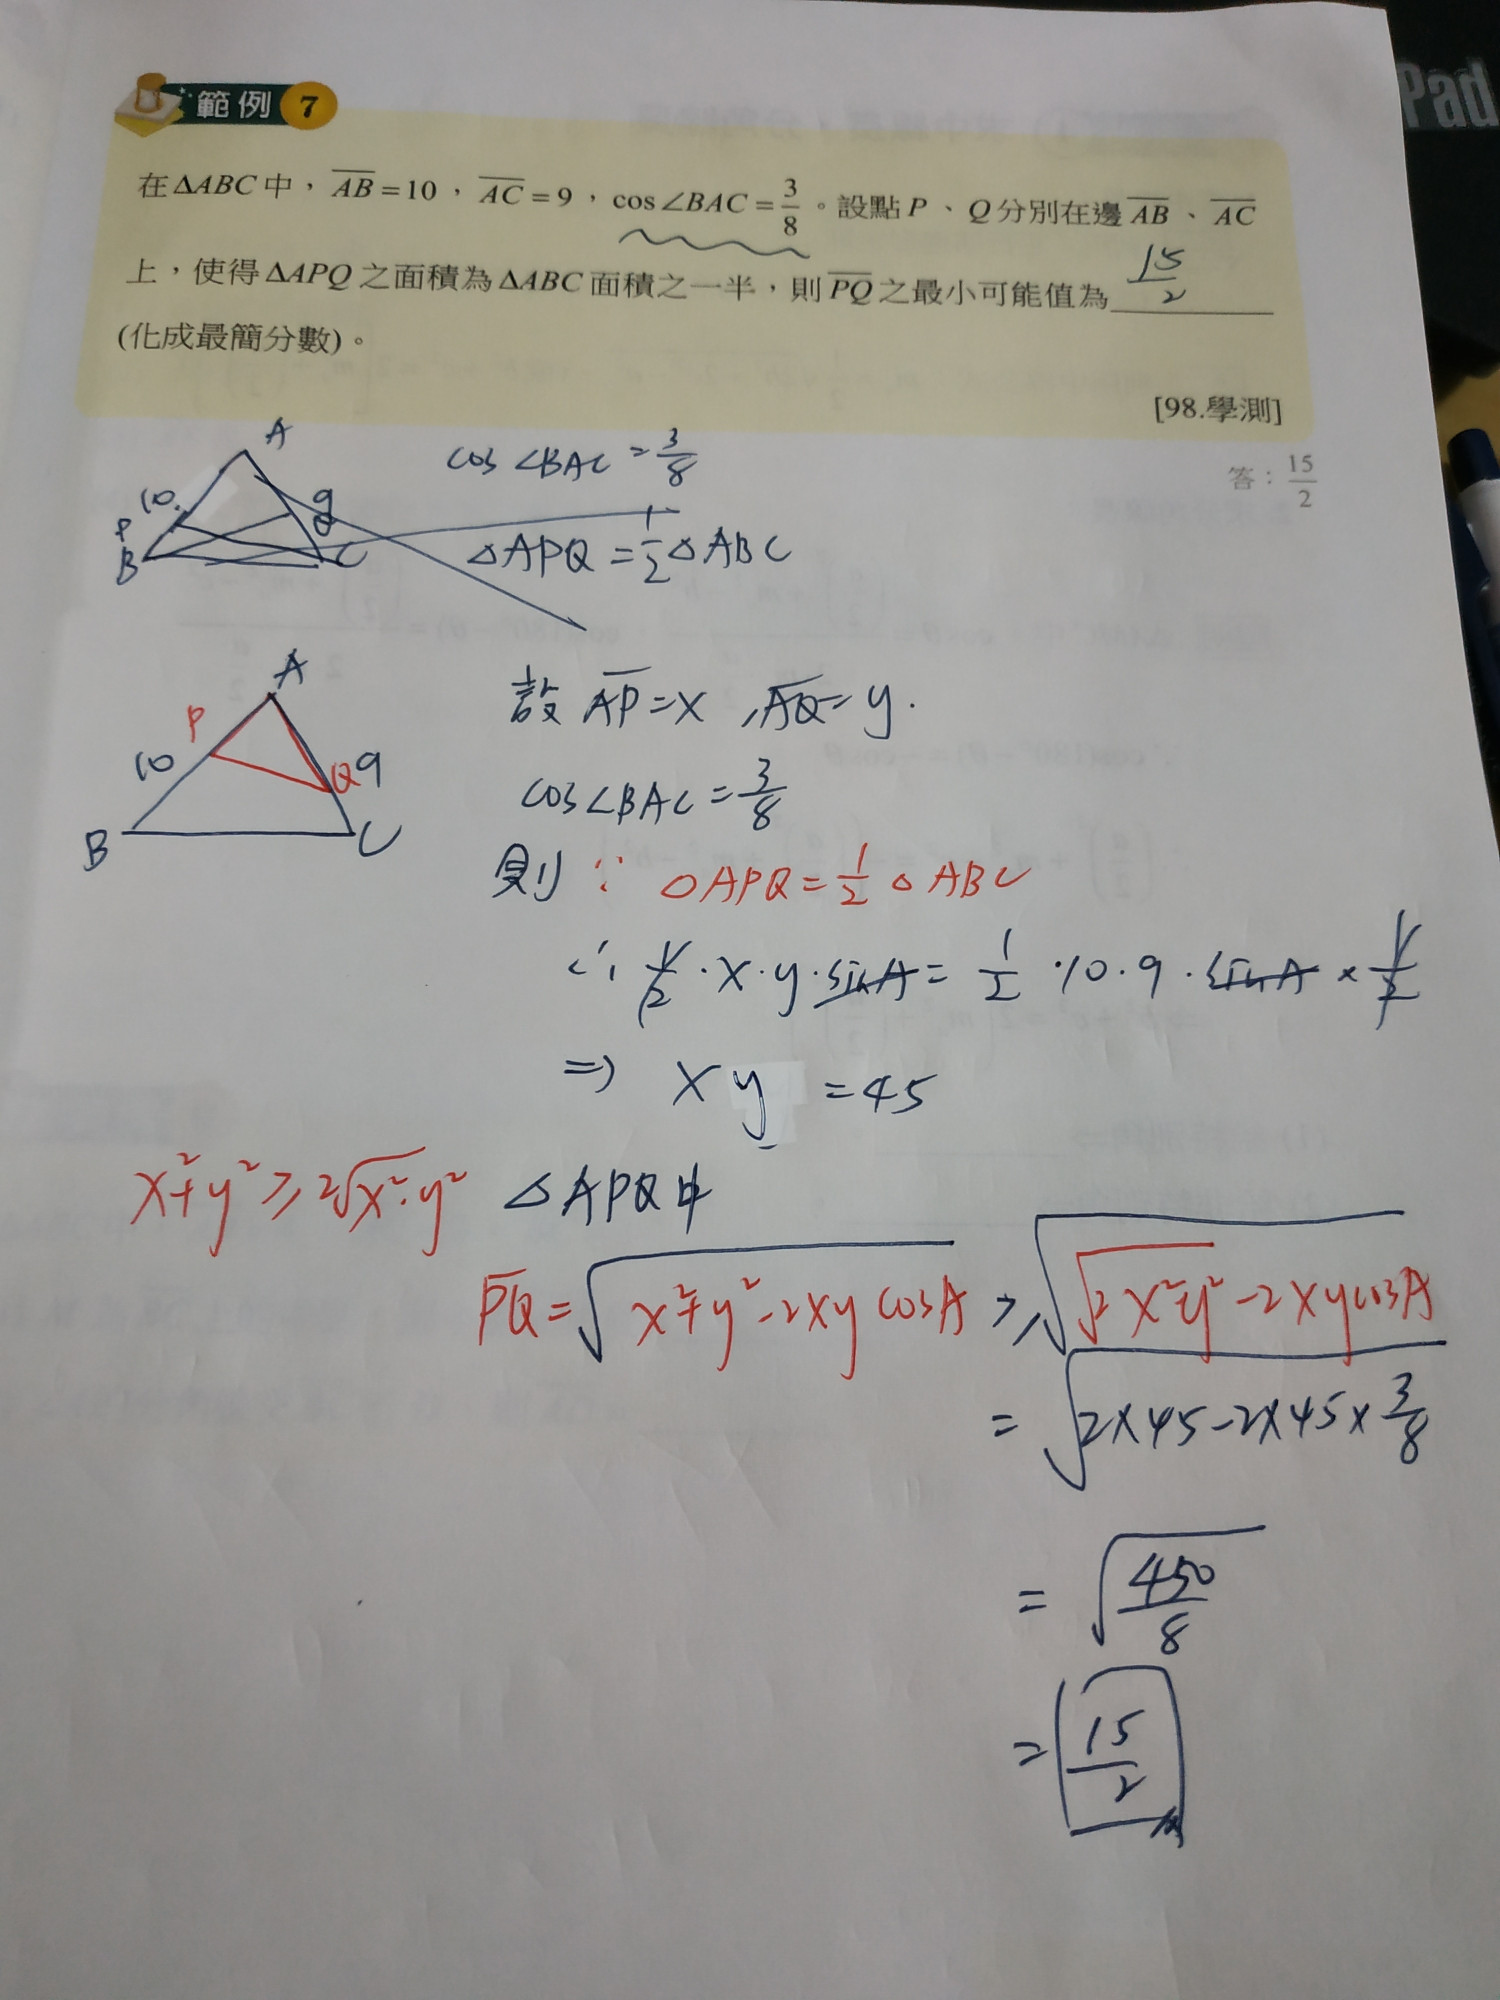 Pad
範例 7
在ΔABC中，AB=10，AC=9，cos∠BAC=3/8。設點P、Q分別在邊AB、AC
上，使得ΔAPQ之面積為ΔABC面積之一半，則PQ之最小可能值為 15/2
(化成最簡分數)。
[98.學測]
答：15/2
A
10
9
P
Q
B
C
cos∠BAC=3/8
△APQ=1/2△ABC
A
P
10
Q
9
B
C
設 AP=x，AQ=y.
cos∠BAC=3/8
則 ∵ △APQ=1/2△ABC
∴ 1/2·x·y·sinA=1/2·10·9·sinA×1/2
⇒ xy=45
x²+y²≥2√x²·y² △APQ中
PQ=√x²+y²-2xycosA ≥√2√x²y²-2xycosA
=√2×45-2×45×3/8
=√450/8
=15/2